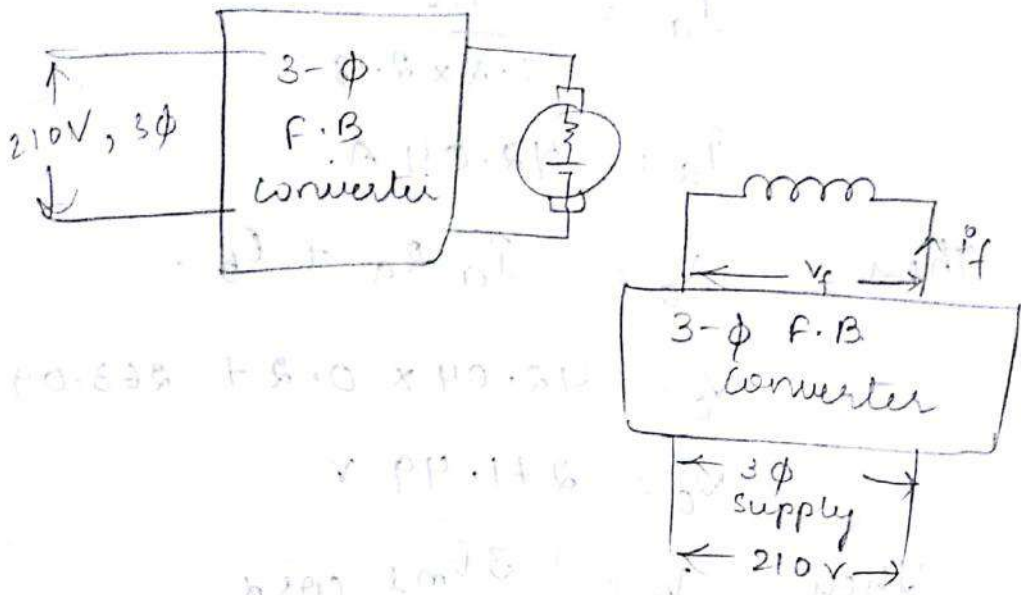 210V, 3ϕ
3-ϕ
F.B
converter
V_f
i_f
3-ϕ F.B.
converter
3ϕ
supply
210 V